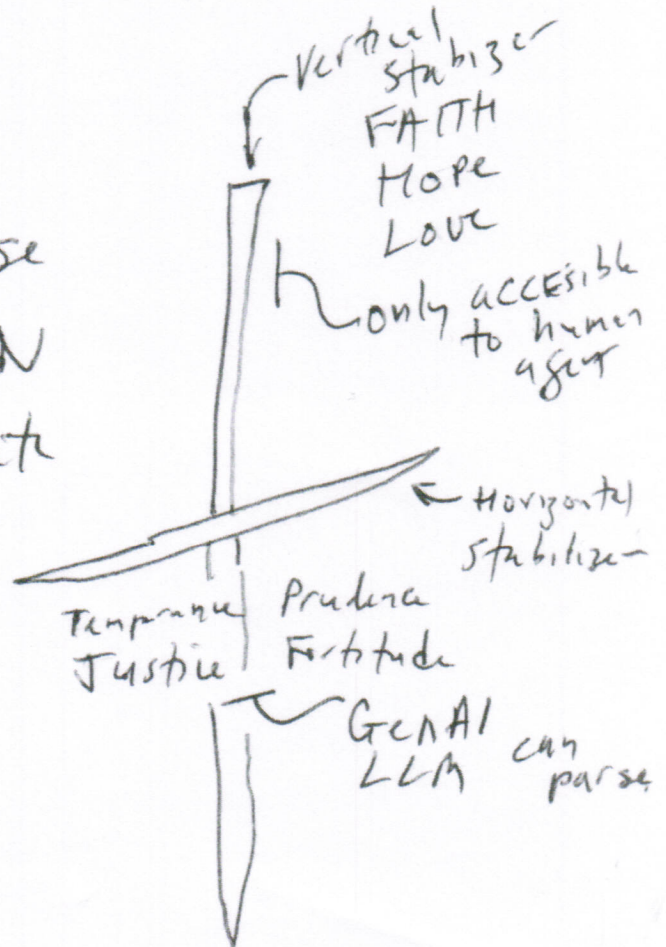 Vertical
stabizer
FAITH
HOPE
LOVE
only accesible
to human
agent
se
N
Horizontal
stabilizer
Temprance Prudence
Justice Fortitude
GenAI
LLM can
parse